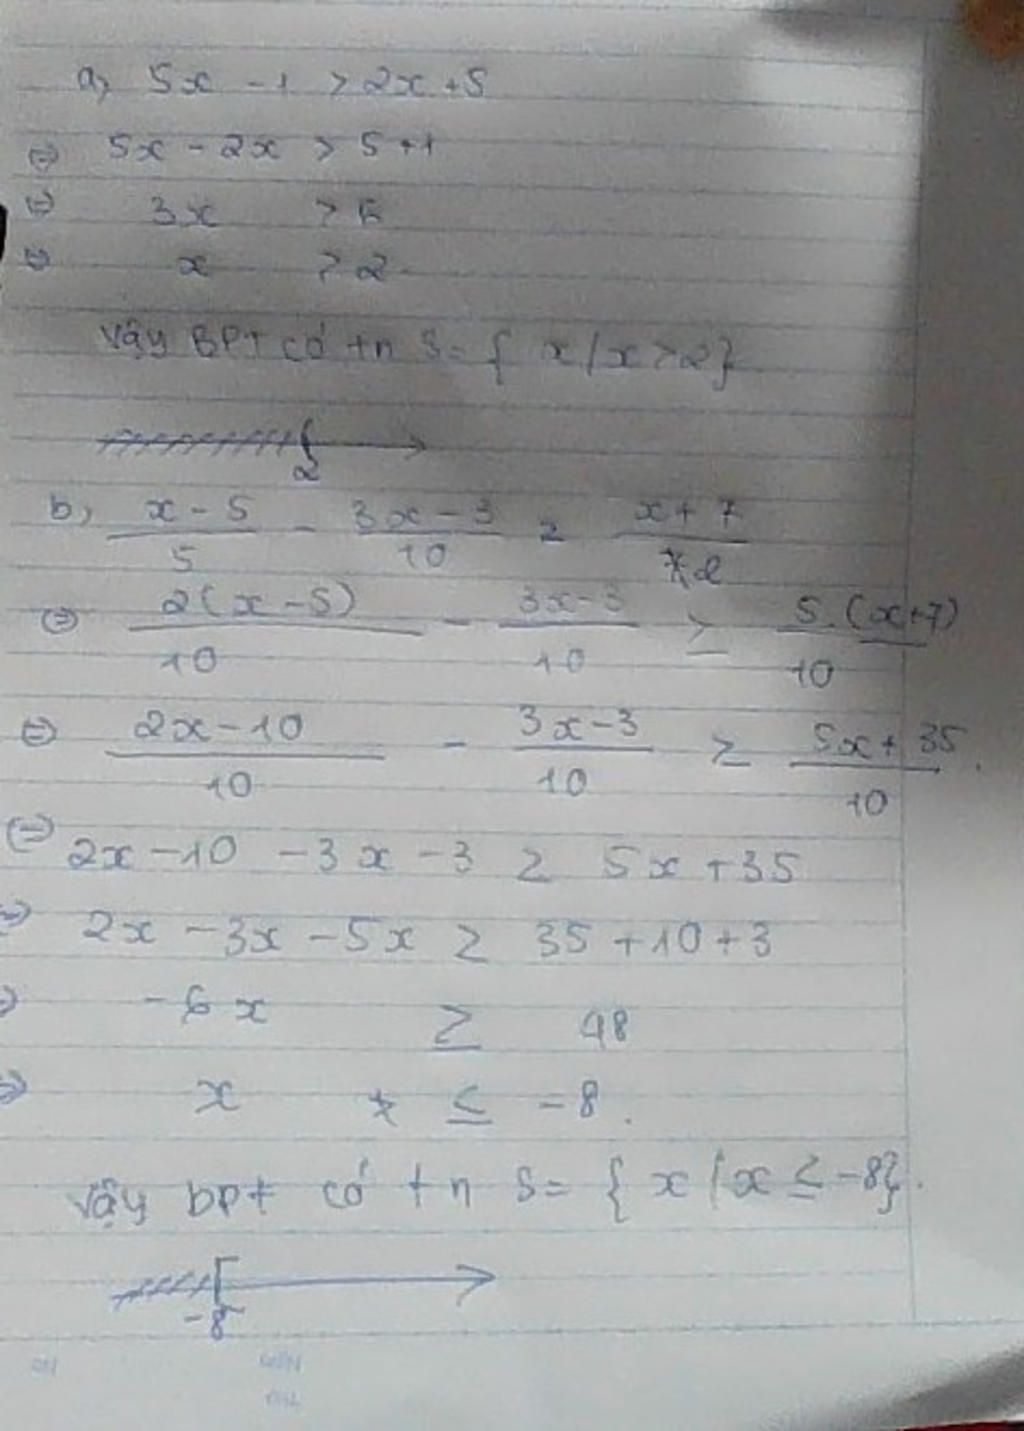 a, 5x - 1 > 2x + 5
⇔ 5x - 2x > 5 + 1
⇔ 3x > 6
⇔ x > 2
Vậy BPT có tn S = { x / x > 2}
2
b, x - 5 / 5 - 3x - 3 / 10 ≥ x + 7 / 2
⇔ 2(x - 5) / 10 - 3x - 3 / 10 ≥ 5.(x+7) / 10
⇔ 2x - 10 / 10 - 3x - 3 / 10 ≥ 5x + 35 / 10
⇔ 2x - 10 - 3x - 3 ≥ 5x + 35
⇔ 2x - 3x - 5x ≥ 35 + 10 + 3
⇔ -6x ≥ 48
⇔ x ≤ -8.
Vậy bpt có tn S = { x / x ≤ -8}.
-8